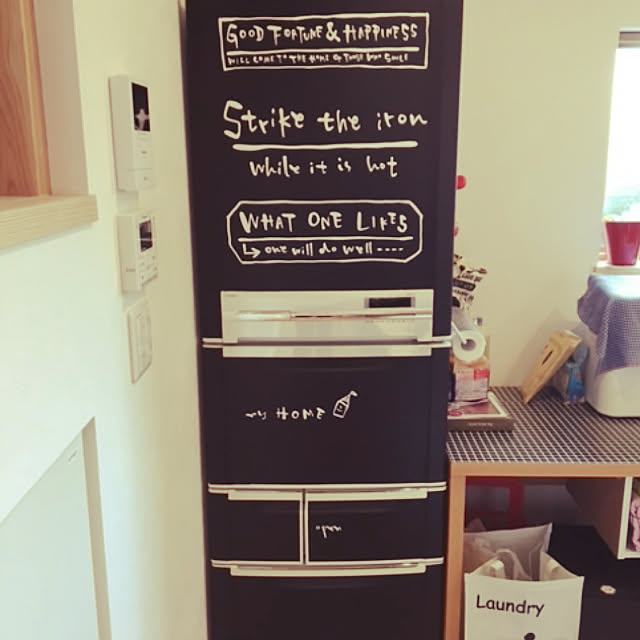 GOOD FORTUNE & HAPPINESS
WILL COME TO THE HOME OF THOSE WHO SMILE
Strike the iron
while it is hot
WHAT ONE LIKES
one will do well ----
my HOME
open
Laundry